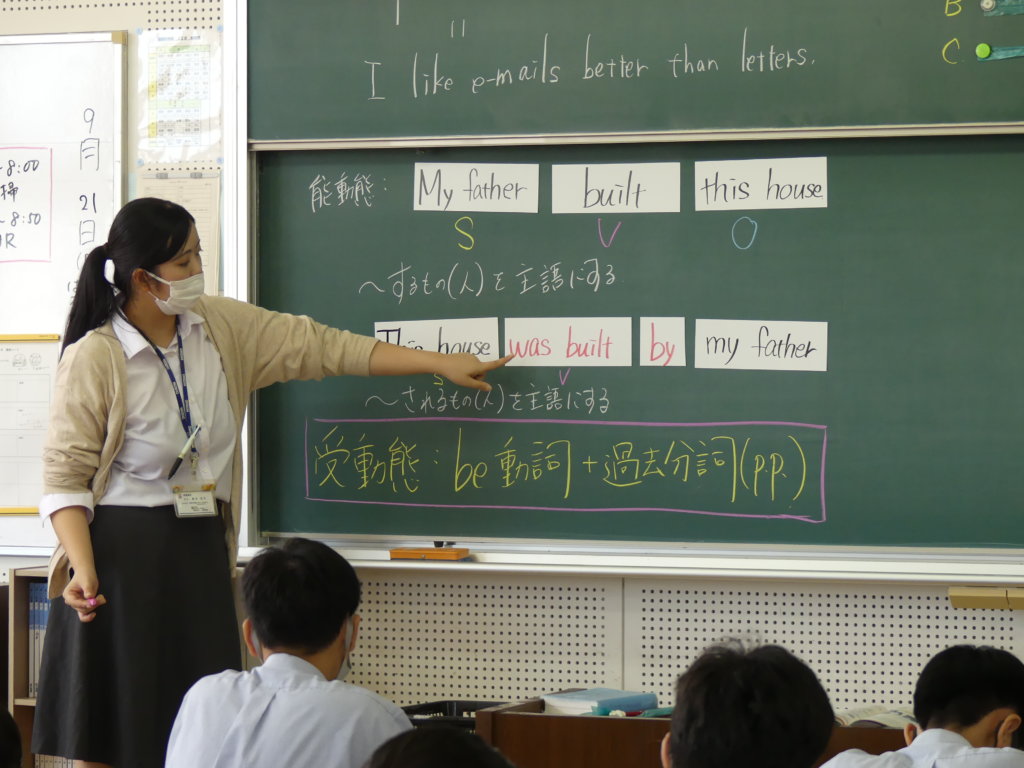 B
I like e-mails better than letters.
C
能動態: My father built this house
S V O
～するもの(人)を主語にする
This house was built by my father
S V
～されるもの(人)を主語にする
受動態: be動詞+過去分詞(p.p.)
9
月
21
日
8:00
掃
8:50